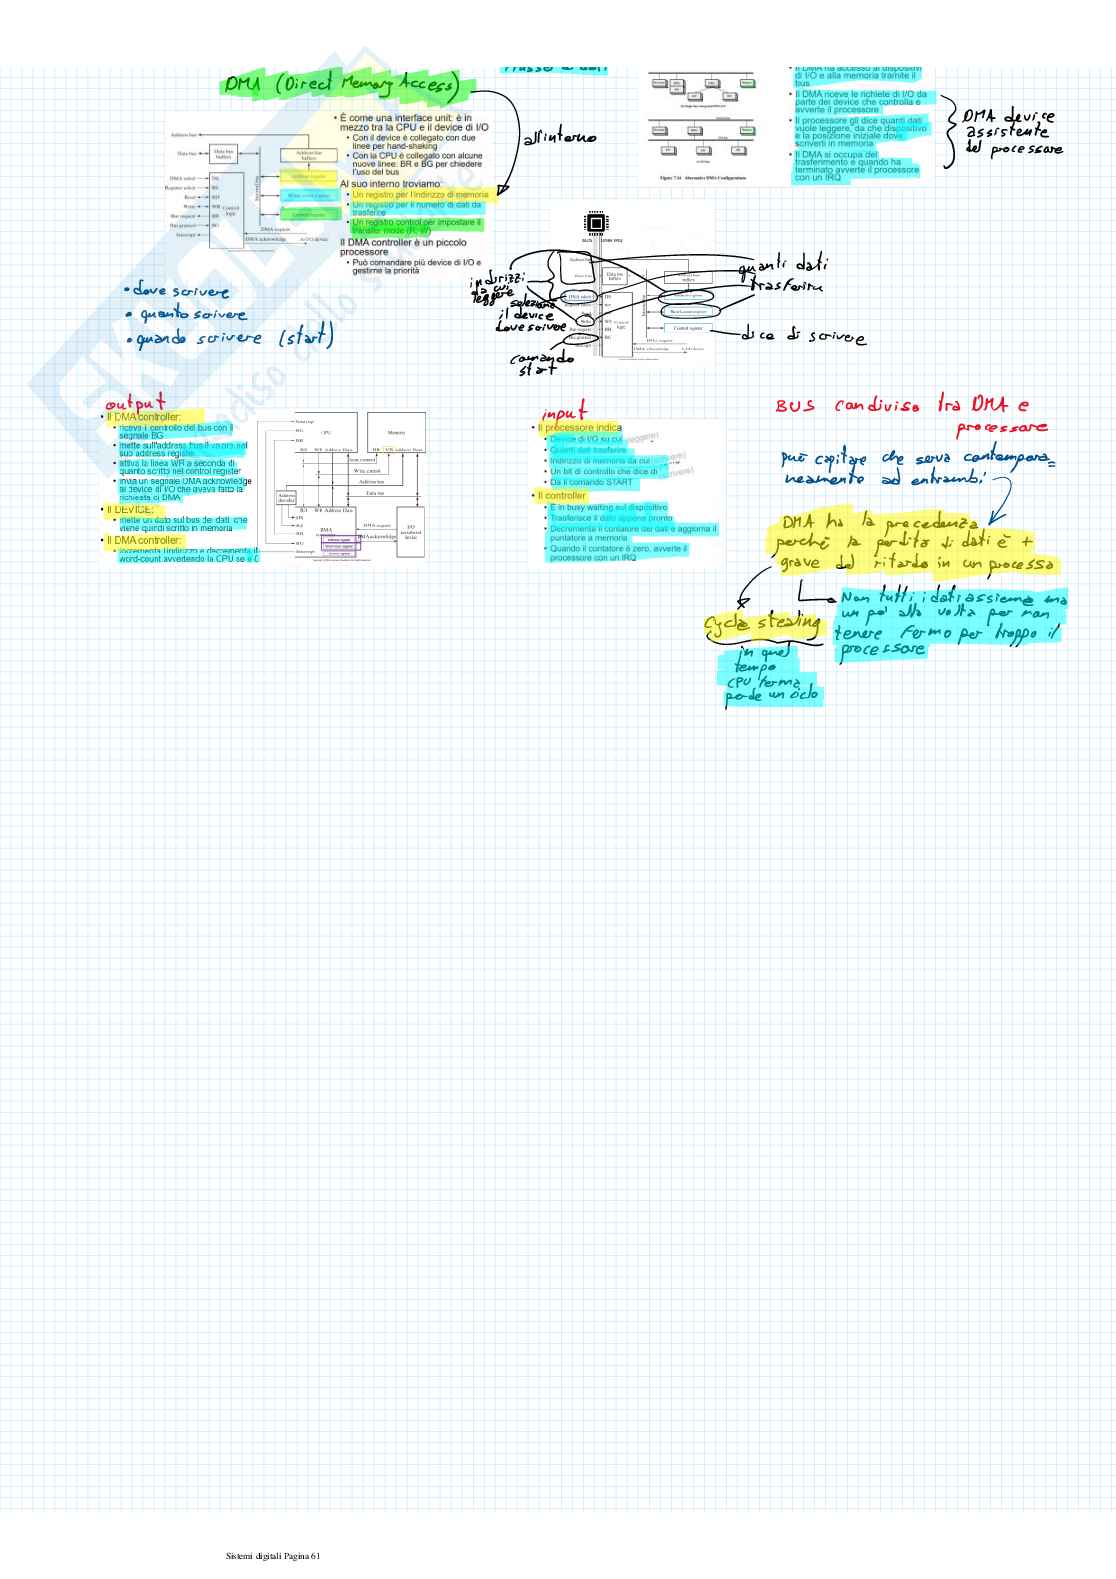 DMA (Direct Memory Access)
• È come una interface unit: è in
mezzo tra la CPU e il device di I/O
• Con il device è collegato con due
linee per hand-shaking
• Con la CPU è collegato con alcune
nuove linee: BR e BG per chiedere
l'uso del bus
Al suo interno troviamo:
• Un registro per l'indirizzo di memoria
• Un registro per il numero di dati da
trasferire
• Un registro control per impostare il
transfer mode (R, W)
Il DMA controller è un piccolo
processore
• Può comandare più device di I/O e
gestirne la priorità
all'interno
Address bus
Data bus
Data bus
buffers
Address bus
buffers
DMA select
Register select
Read
Write
Bus request
Bus granted
Interrupt
DS
RS
RD
WR
BR
BG
Control
logic
Address register
Word-count register
Control register
DMA request
DMA acknowledge
to I/O device
• Il DMA ha accesso ai dispositivi
di I/O e alla memoria tramite il
bus
• Il DMA riceve le richieste di I/O da
parte dei device che controlla e
avverte il processore
• Il processore gli dice quanti dati
vuole leggere, da che dispositivo
e la posizione iniziale dove
scriverli in memoria
• Il DMA si occupa del
trasferimento e quando ha
terminato avverte il processore
con un IRQ
DMA device
assistente
del processore
Figure 7.14 Alternative DMA Configurations
• dove scrivere
• quanto scrivere
• quando scrivere (start)
indirizzi
da cui
leggere
seleziona
il device
dove scrivere
comando
start
quanti dati
trasferire
dice di scrivere
Data bus
buffers
Control register
output
• Il DMA controller:
• riceve il controllo del bus con il
segnale BG
• mette sull'address bus il valore nel
suo address register
• attiva la linea WR a seconda di
quanto scritto nel control register
• invia un segnale DMA acknowledge
al device di I/O che aveva fatto la
richiesta di DMA
• Il DEVICE:
• mette un dato sul bus dei dati, che
viene quindi scritto in memoria
• Il DMA controller:
• incrementa l'indirizzo e decrementa il
word-count avvertendo la CPU se è 0
Interrupt
BG
BR
CPU
Memory
RD WR Address Data
Read control
Write control
Address bus
Data bus
Address
decoder
DS
RS
BR
BG
Interrupt
DMA
DMA request
DMA acknowledge
I/O
peripheral
device
input
• Il processore indica
• Device di I/O su cui
• Quanti dati trasferire
• Indirizzo di memoria da cui
• Un bit di controllo che dice di
• Da il comando START
• Il controller
• È in busy waiting sul dispositivo
• Trasferisce il dato appena pronto
• Decrementa il contatore dei dati e aggiorna il
puntatore a memoria
• Quando il contatore è zero, avverte il
processore con un IRQ
BUS condiviso tra DMA e
processore
può capitare che serva contempora=
neamente ad entrambi
DMA ha la precedenza
perché la perdita di dati è +
grave del ritardo in un processo
Cycle stealing
in quel
tempo
CPU ferma
perde un ciclo
Non tutti i dati assieme ma
un po' alla volta per non
tenere fermo per troppo il
processore
Sistemi digitali Pagina 61